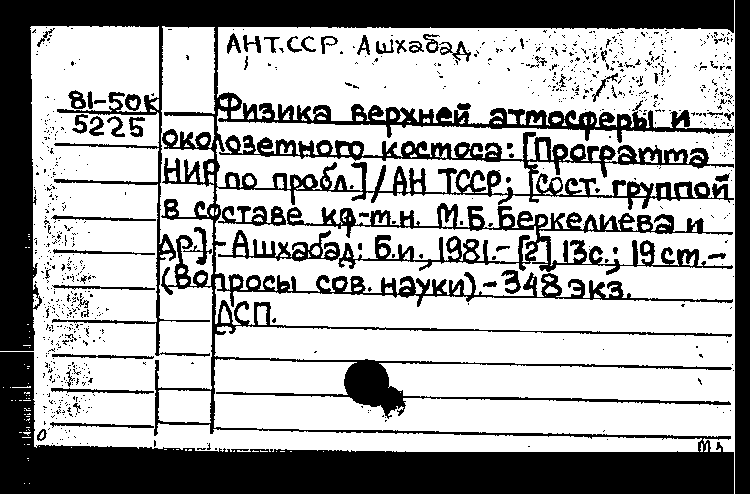 АН Т.ССР. Ашхабад.
81-50К
5225
Физика верхней атмосферы и
околоземного космоса: [Программа
НИР по пробл.] / АН ТССР; [сост. группой
в составе к.ф.-м.н. М.Б. Беркелиева и
др.].- Ашхабад: Б.и., 1981.- [2], 13с.; 19 см.-
(Вопросы сов. науки).- 348 экз.
ДСП.